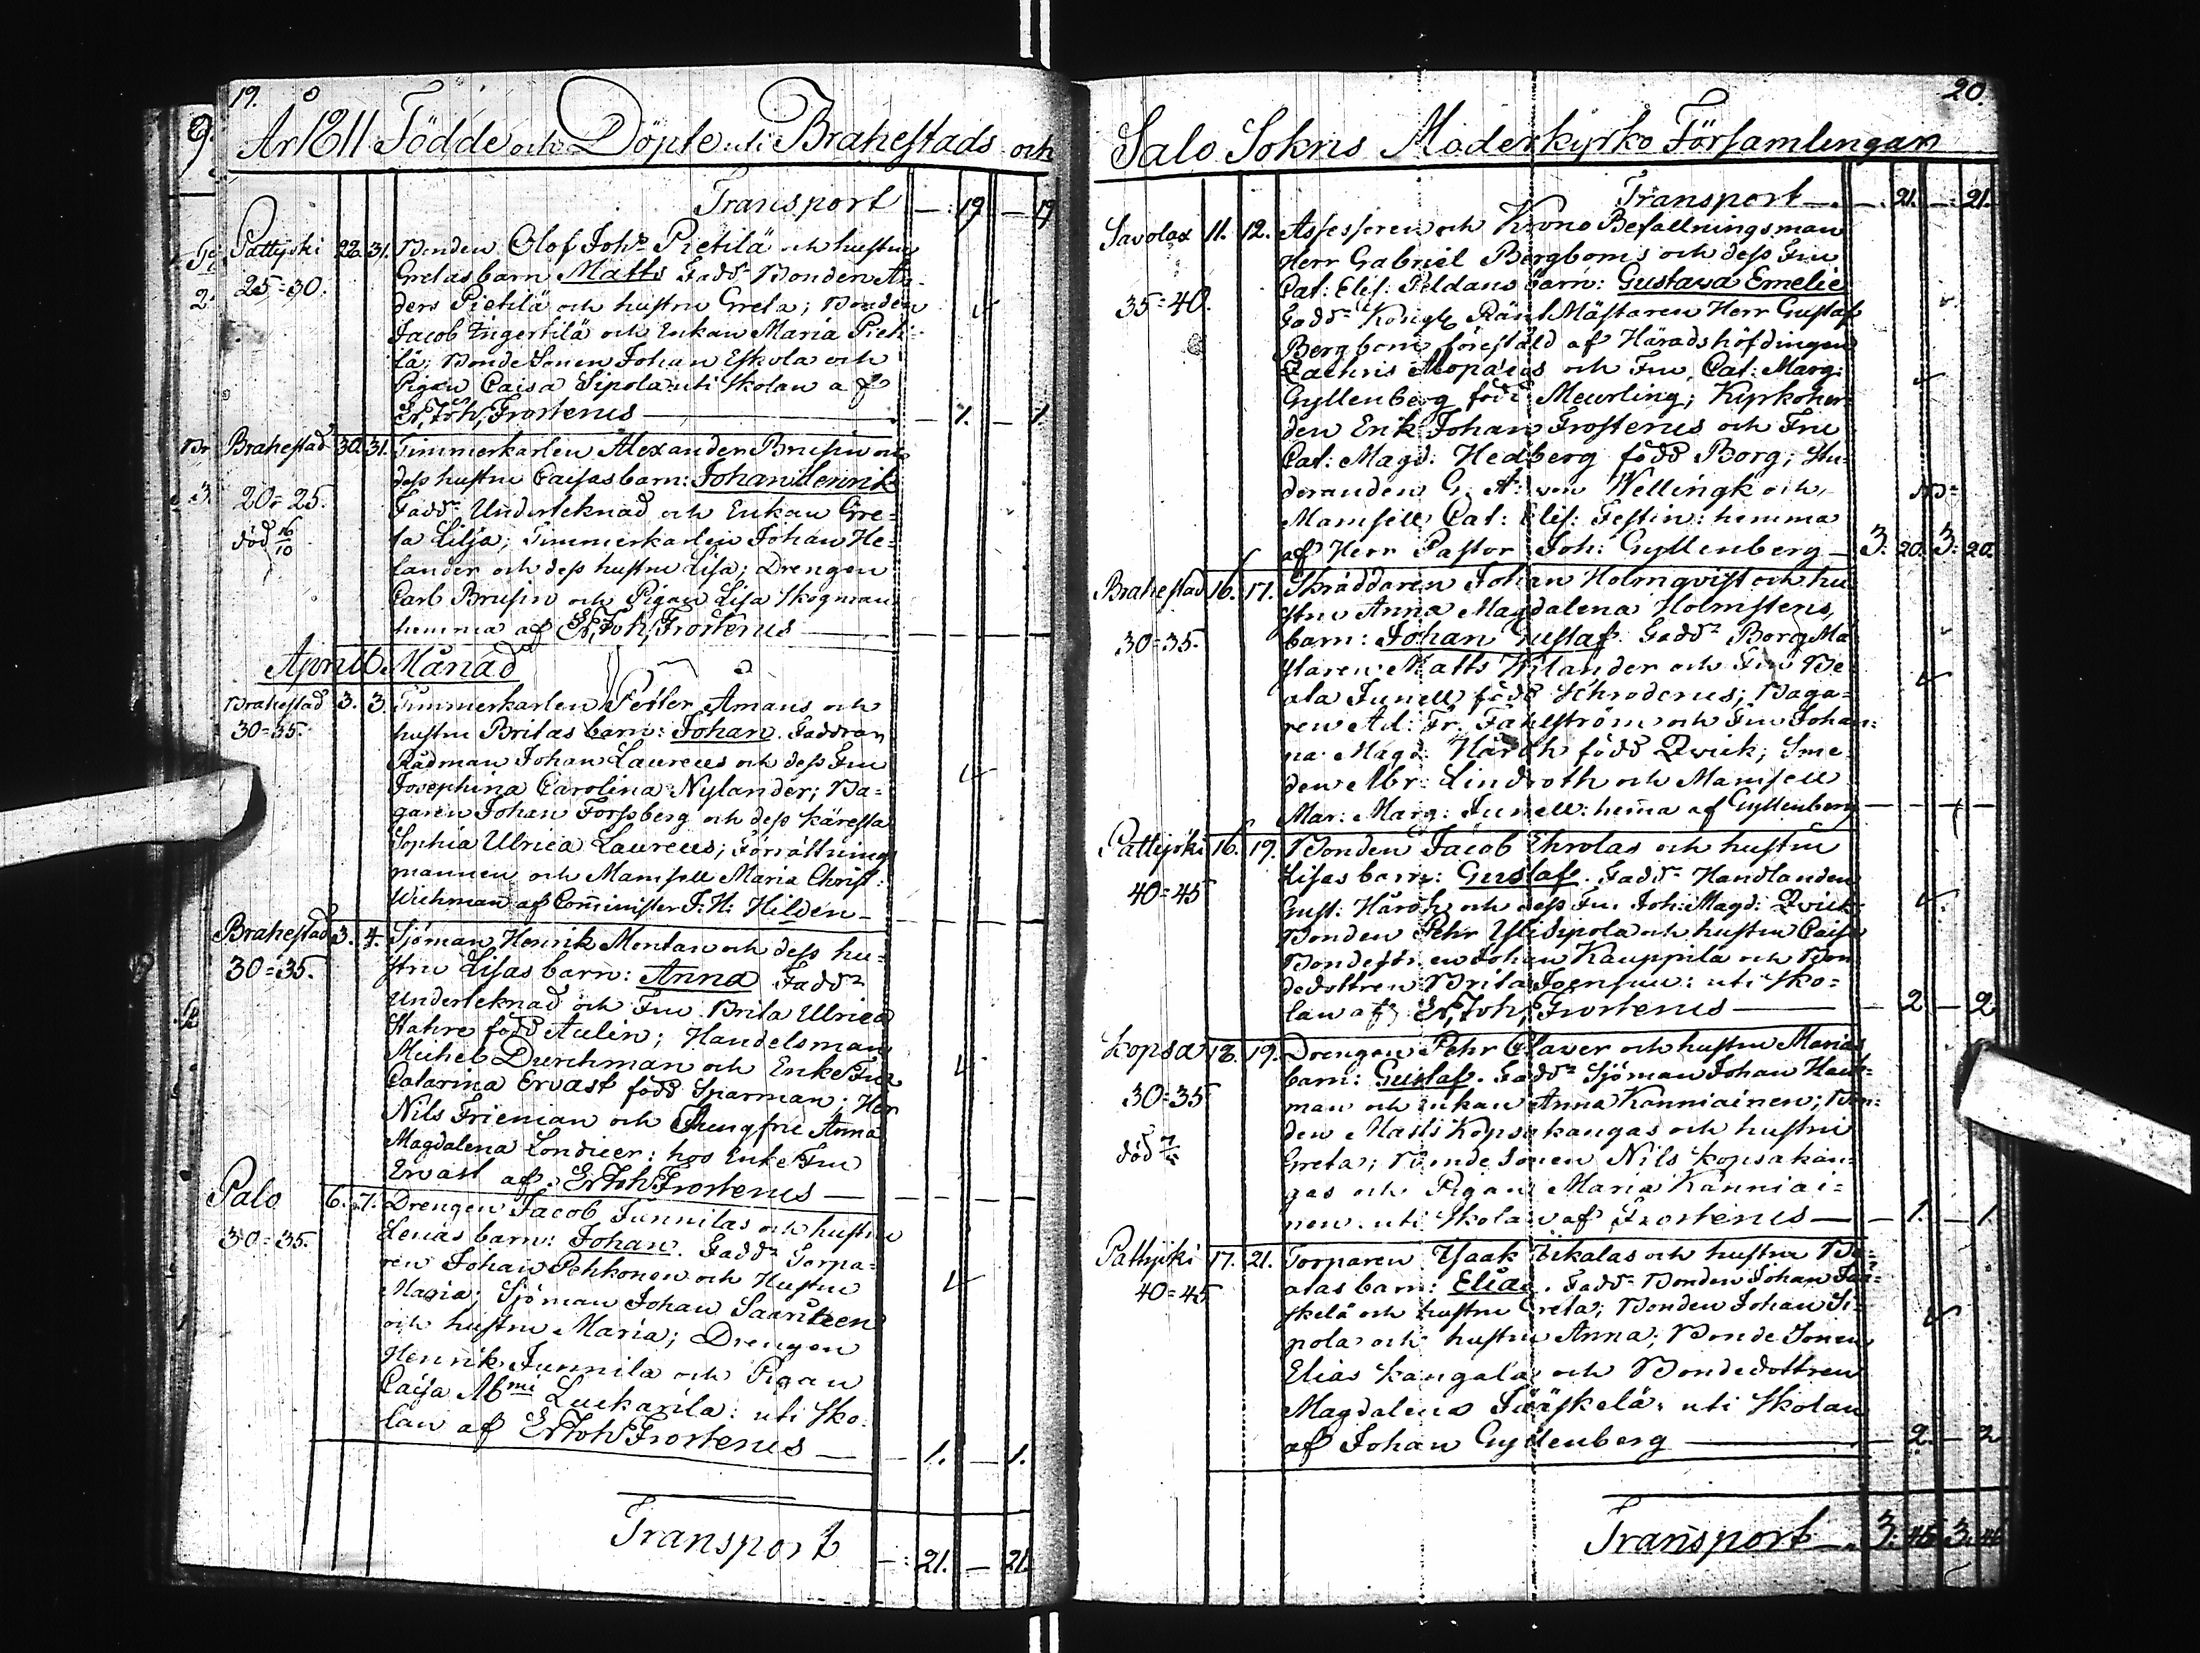 19.
År 1811 Födde och Döpte uti Brahestads och
Transport — 19 — 19
Pattijoki 22. 31. Bonden Olof Johs Pietilä och hustru
25=30. Gretas barn Matts Faddr Bonden An-
ders Pietilä och hustru Greta; Bonden
Jacob Ingertilä och Enkan Maria Pieti-
lä; Bonde Sonen Johan Eskola och
Pigan Caisa Sipola: uti Skolan af
Er. Joh. Frosterus — 1. — 1.
Brahestad 30. 31. Timmerkarlen Alexander Brusin och
dess hustru Caisas barn: Johan Henrik
20=25. Faddr Underteknad och Enkan Gre-
död 16/10 ta Lilja; Timmerkarlen Johan He-
lander och dess hustru Lisa; Drengen
Carl Brusin och Pigan Lisa Skogman
hemma af Er. Joh. Frosterus — — —
Aprill Månad
Brahestad 3. 3. Timmerkarlen Petter Amans och
30=35. hustru Britas barn: Johan. Faddran
Rådman Johan Laureus och dess Fru
Josephina Carolina Nylander; Ba-
garen Johan Forssberg och dess käresta
Sophia Ulrica Laureus; Förrättnings
mannen och Mamsell Maria Christ:
Wichman af Comminister J: H: Hilden — — —
Brahestad 3. 4. Sjöman Henrik Montan och dess hu-
30=35. stru Lisas barn: Anna Faddr
Underteknad och Fru Brita Ulrica
Stahre född Aulin; Handelsman
Michel Durchman och Enke Fru
Catarina Ervast född Sparman; Herr
Nils Frieman och Jungfru Anna
Magdalena Londicer: hos Enke Fru
Ervast af Er Joh Frosterus — — —
Palo 6. 7. Drengen Jacob Junnilas och hustru
30=35. Lenas barn: Johan. Faddr Torpa-
ren Johan Pehkonen och Hustru
Maria; Sjöman Johan Saarinen
och hustru Maria; Drengen
Henrik Junnila och Pigan
Caisa Luckarila: uti Sko-
lan af Er Joh Frosterus — 1. — 1.
Transport — 21. — 21.
20.
Salo Sokns Moderkyrko Församlingan
Transport — 21. — 21.
Savolax 11. 12. Assessoren och Krono Befallningsman
Herr Gabriel Bergboms och dess Fru
Cat: Elis: Peldans barn: Gustava Emelie
35=40. Faddr Kongl Ränt Mästaren Herr Gustaf
Bergbom föreställd af Häradshöfdingen
Zachris Alopæus och Fru Cat: Marg:
Gyllenberg född Meurling; Kyrkoher-
den Erik Johan Frosterus och Fru
Cat: Magd: Hedberg född Borg; Stu-
deranden G: A: von Wellingk och
Mamsell Cat: Elis: Festin: hemma
af Herr Pastor Joh: Gyllenberg — 3. 20. 3. 20.
Brahestad 16. 17. Skräddaren Johan Holmqvist och hu-
stru Anna Magdalena Holmstens
30=35. barn: Johan Gustaf. Faddr Borg Mä-
staren Matts Wilander och Fru Be-
ata Junell född Schroderus; Baga-
ren Ad: Fr. Fahlström och Fru Johan-
na Magd: Håroh född Zwick; Sme-
den Abr: Lindroth och Mamsell
Mar: Marg: Junell: hemma af Gyllenberg — — —
Pattijoki 16. 19. Bonden Jacob Ehrolas och hustru
40=45 Lisas barn: Gustaf. Faddr Handlanden
Gust: Håroh och dess Fru Joh: Magd: Zwick
Bonden Pehr Ylisipola och hustru Caisa
Johan Kauppila och Bon-
dedottren Brita Joensuu: uti Sko-
lan af Er. Joh. Frosterus — 2 — 2
Kopsa 18. 19. Drengen Pehr Claver och hustru Marias
barn: Gustaf. Faddr Sjöman Johan
30=35 man och Enkan Anna Kanniainen; Bon-
den Matts Kopsakangas och hustru
död Greta; Bonde Sonen Nils Kopsakan-
gas och Pigan Maria Kanniai-
nen. uti Skolan af Frosterus — 1. — 1.
Pattijoki 17. 21. Torparen Isaak Tikalas och hustru Be-
40=45 atas barn: Elias. Faddr Bonden Johan Jää-
skelä och hustru Greta; Bonden Johan Si-
pola och hustru Anna; Bonde Sonen
Elias Kangala och Bondedottren
Magdalena Jääskelä: uti Skolan
af Johan Gyllenberg — 2. — 2
Transport — 3. 46 3. 46